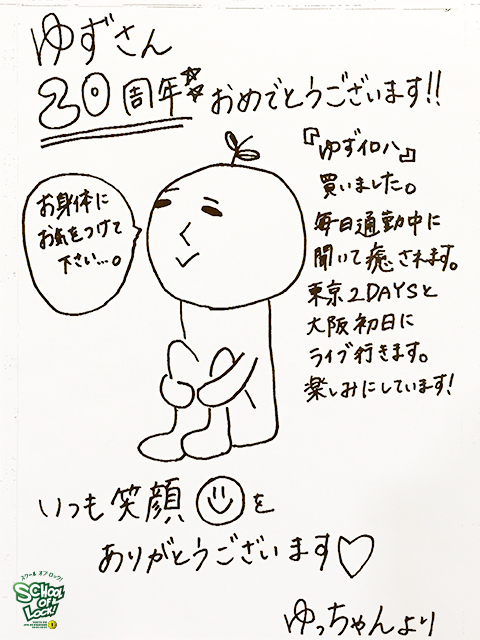 ゆずさん
20周年おめでとうございます!!
『ゆずイロハ』
買いました。
毎日通勤中に
聞いて癒されます。
東京2DAYSと
大阪初日に
ライブ行きます。
楽しみにしています!
お身体に
お気をつけて
下さい…。
いつも笑顔を
ありがとうございます♡
ゆっちゃんより
スクール オブ ロック!
SCHOOL
OF
LOCK!